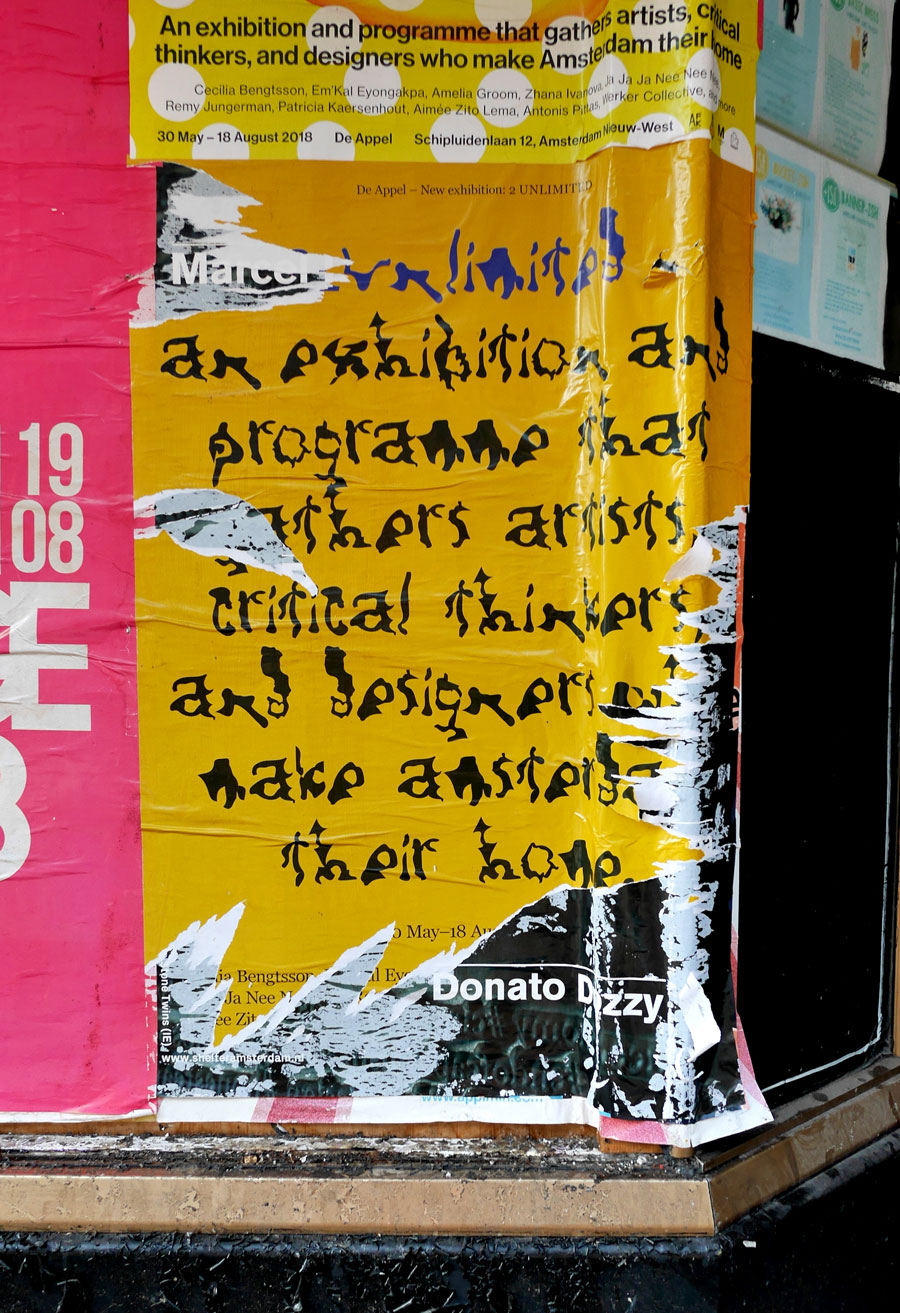 An exhibition and programme that gathers artists, critical
thinkers, and designers who make Amsterdam their home
Cecilia Bengtsson, Em'Kal Eyongakpa, Amelia Groom, Zhana Ivanova, Ja Ja Ja Nee Nee Nee
Remy Jungerman, Patricia Kaersenhout, Aimée Zito Lema, Antonis Pittas, Werker Collective, and more
30 May – 18 August 2018 De Appel Schipluidenlaan 12, Amsterdam Nieuw-West
De Appel – New exhibition: 2 UNLIMITED
Marcel
unlimited
an exhibition and
programme that
athers artists
critical thinkers,
and designers
make amsterda
their home.
May–18 Au
ia Bengtsson
Ja Nee N
ee Zit
Donato Dozzy
Tone Twins (IE)
www.shelteramsterdam.nl
19
08
E